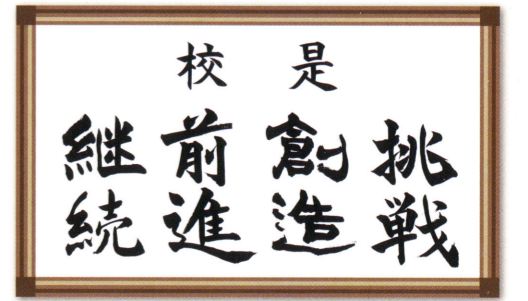 校是
挑戦
創造
前進
継続